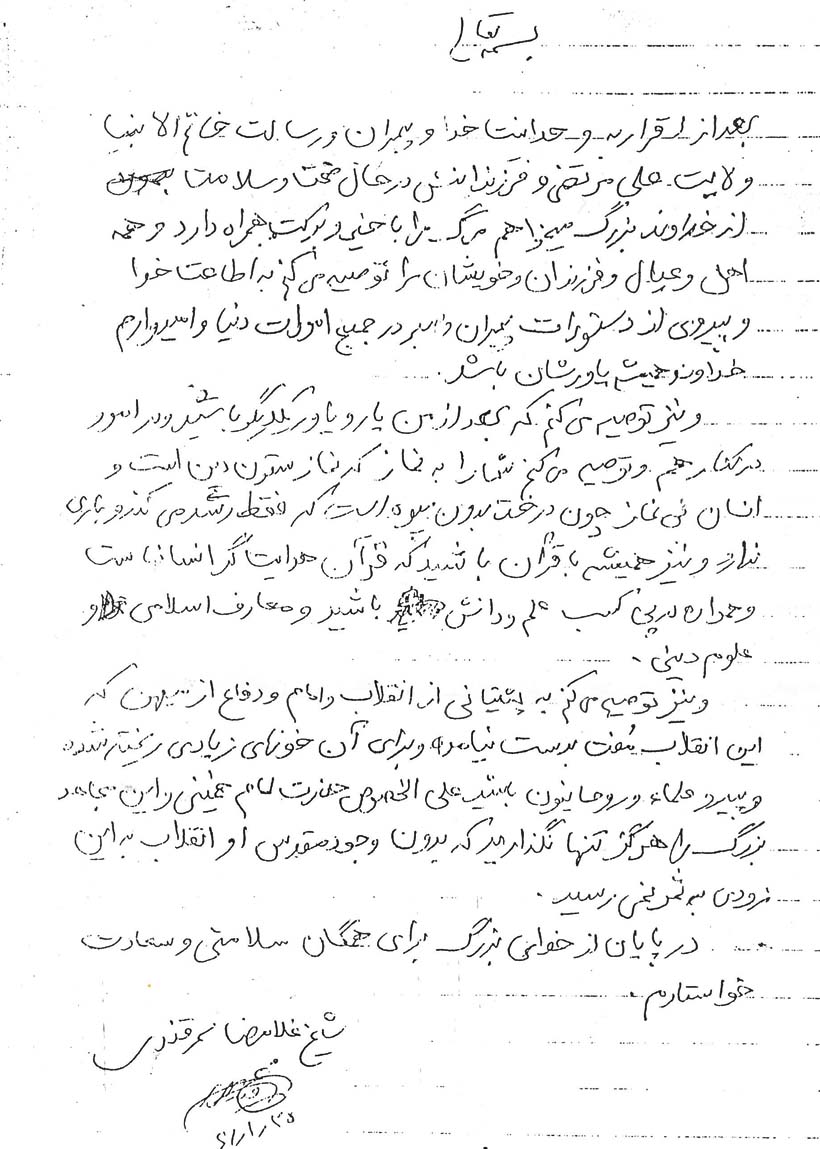 بسمه تعالی
بعد از اقرار به وحدانیت خدا و پیمبران و رسالت خاتم الانبیا
ولایت علی مرتضی و فرزندانش در حال صحت و سلامت
از خداوند بزرگ میخواهم مرگ مرا با خیر و برکت همراه دارد و همه
اهل و عیال و فرزندان و خویشان را توصیه می کنم به اطاعت خدا
و پیروی از دستورات پیمبران در جمیع امورات دنیا و امیدوارم
خداوند همیشه یاورشان باشد.
و نیز توصیه می کنم که بعد از من یار و یاور یکدیگر باشید و در امور
در کنار هم و توصیه می کنم شما را به نماز که نماز ستون دین است و
انسان بی نماز چون درخت بدون میوه است که فقط رشد می کند و باری
ندارد و نیز همیشه با قرآن باشید که قرآن هدایتگر انسانهاست
و همواره در پی کسب علم و دانش باشید و معارف اسلامی و
علوم دینی.
و نیز توصیه می کنم به پشتیبانی از انقلاب و امام و دفاع از میهن که
این انقلاب مفت بدست نیامده و برای آن خونهای زیادی ریخته شده
و پیرو علماء و روحانیون باشید علی الخصوص حضرت امام خمینی و این مجاهد
بزرگ را هرگز تنها نگذارید که بدون وجود مقدس او انقلاب به این
زودی به ثمر نمی رسید.
در پایان از خدای بزرگ برای همگان سلامتی و سعادت
خواستارم.
شیخ غلامرضا سمرقندی